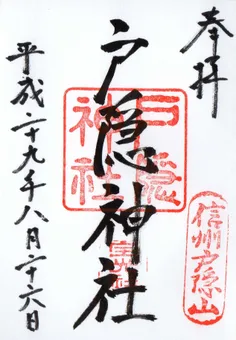 奉拝
戸隠神社
平成二十九年八月二十六日
戸隠
神社
信州戸隠山